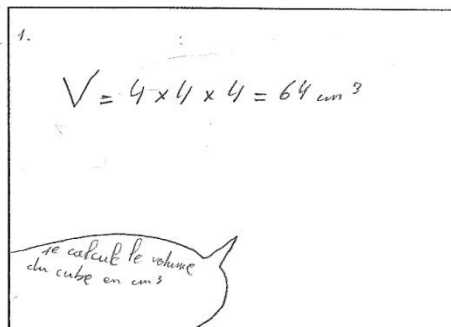 1.
V = 4 x 4 x 4 = 64 cm³
je calcule le volume
du cube en cm³